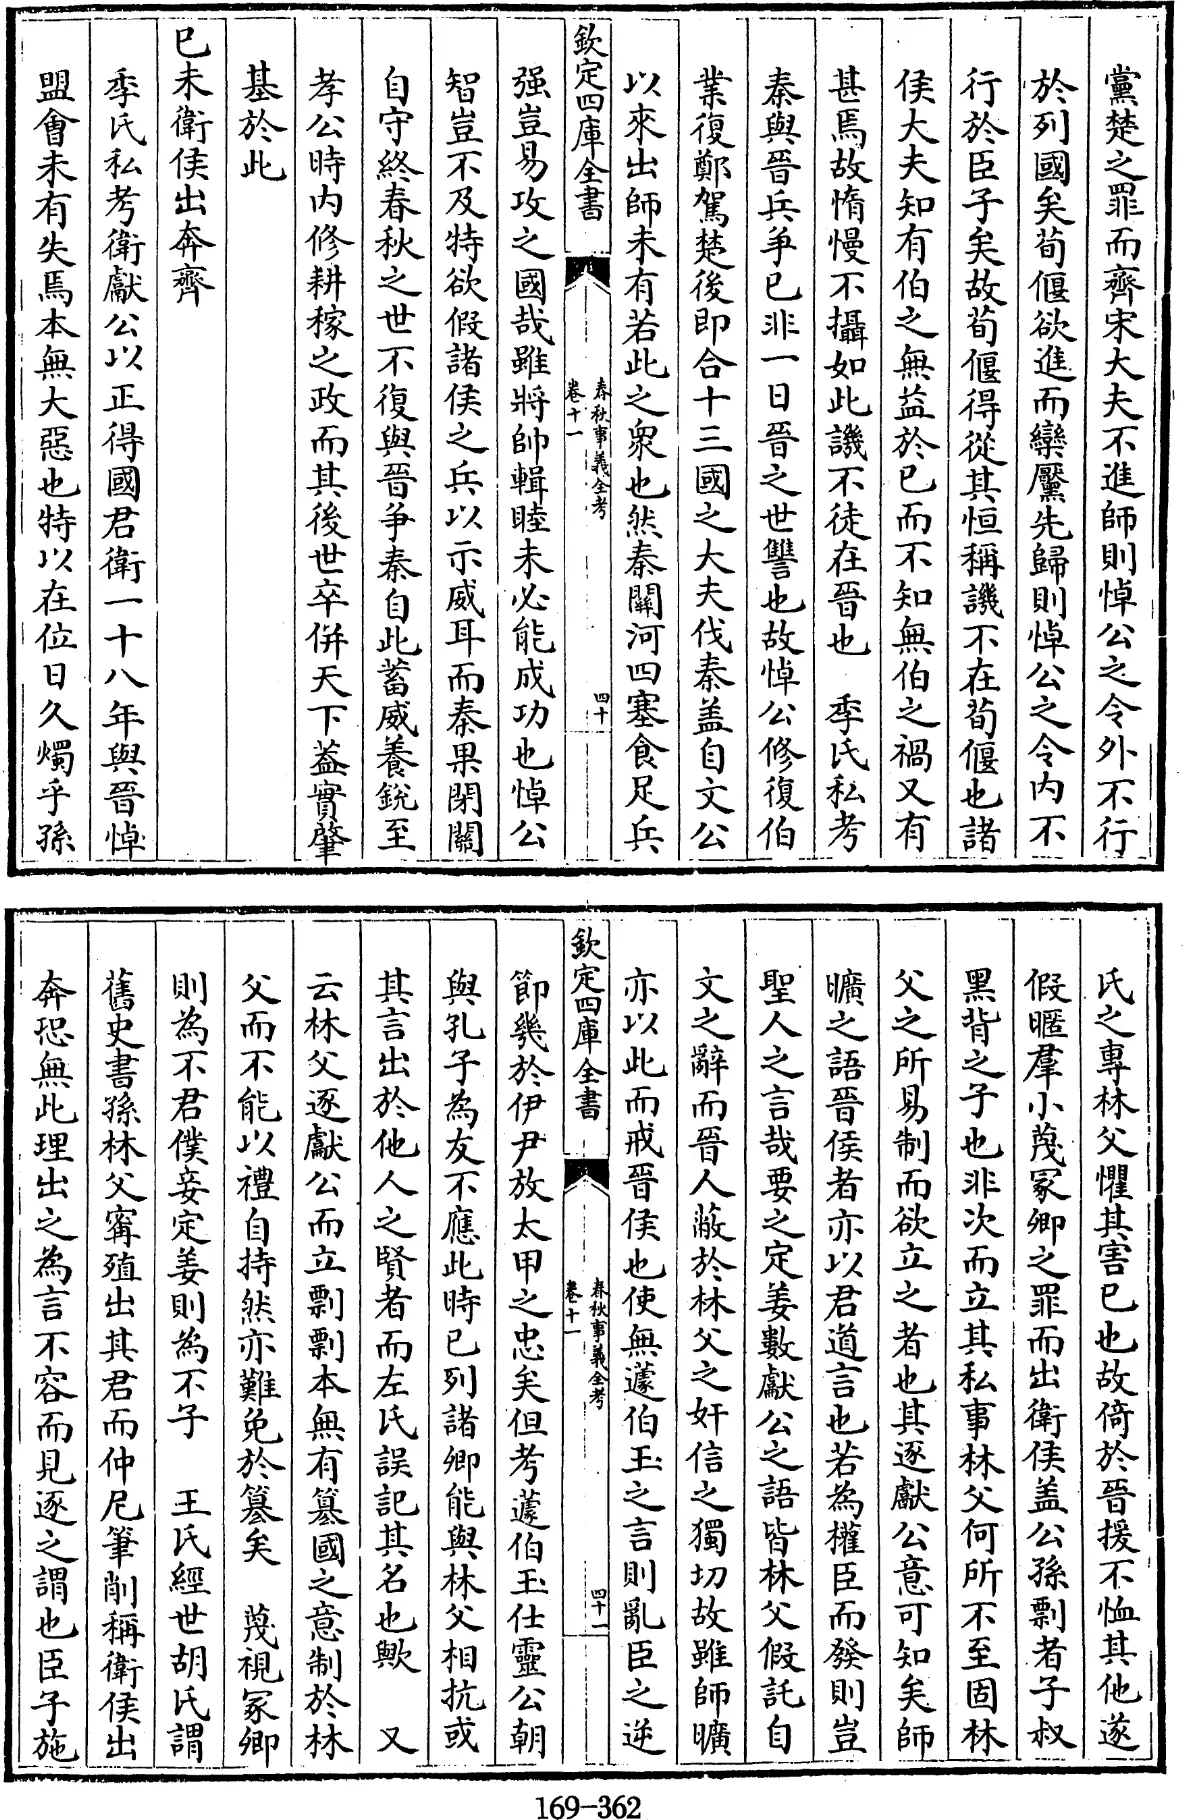 黨楚之罪而齊宋大夫不進師則悼公之令外不行
於列國矣荀偃欲進而欒黶先歸則悼公之令内不
行於臣子矣故荀偃得從其恒稱譏不在荀偃也諸
侯大夫知有伯之無益於已而不知無伯之禍又有
甚焉故惰慢不攝如此譏不徒在晉也　季氏私考
秦與晉兵爭已非一日晉之世讐也故悼公修復伯
業復鄭駕楚後即合十三國之大夫伐秦盖自文公
以來出師未有若此之衆也然秦關河四塞食足兵
欽定四庫全書
春秋事義全考
卷十一
四十
强豈易攻之國哉雖將帥輯睦未必能成功也悼公
智豈不及特欲假諸侯之兵以示威耳而秦果閉關
自守終春秋之世不復與晉爭秦自此蓄威養銳至
孝公時内修耕稼之政而其後世卒併天下葢實肇
基於此
已未衛侯出奔齊
季氏私考衛獻公以正得國君衛一十八年與晉悼
盟會未有失焉本無大惡也特以在位日久燭乎孫
氏之專林父懼其害已也故倚於晉援不恤其他遂
假暱羣小蔑冢卿之罪而出衛侯盖公孫剽者子叔
黑背之子也非次而立其私事林父何所不至固林
父之所易制而欲立之者也其逐獻公意可知矣師
曠之語晉侯者亦以君道言也若為權臣而發則豈
聖人之言哉要之定姜數獻公之語皆林父假託自
文之辭而晉人蔽於林父之奸信之獨切故雖師曠
亦以此而戒晉侯也使無蘧伯玉之言則亂臣之逆
欽定四庫全書
春秋事義全考
卷十一
四十一
節幾於伊尹放太甲之忠矣但考蘧伯玉仕靈公朝
與孔子為友不應此時已列諸卿能與林父相抗或
其言出於他人之賢者而左氏誤記其名也歟　又
云林父逐獻公而立剽剽本無有簒國之意制於林
父而不能以禮自持然亦難免於簒矣　蔑視冢卿
則為不君僕妾定姜則為不子　王氏經世胡氏謂
舊史書孫林父甯殖出其君而仲尼筆削稱衛侯出
奔恐無此理出之為言不容而見逐之謂也臣子施
169-362